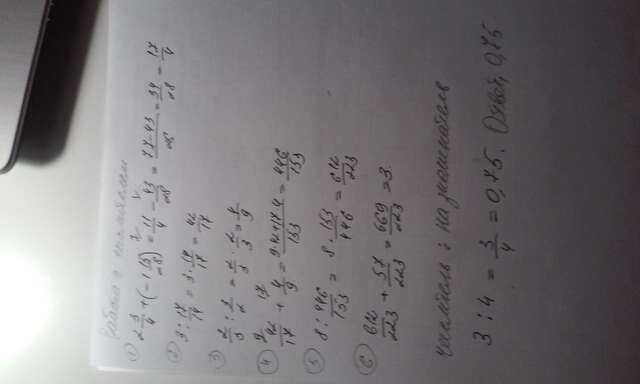 Работа с числителем
1) 2 3/4 + (-1 15/28) = 11/4 - 43/28 = 77-43/28 = 34/28 = 17/4
2) 3 : 17/14 = 3 · 14/17 = 42/17
3) 2/3 : 3/2 = 2/3 · 2/3 = 4/9
4) 42/17 + 4/9 = 9·42+17·4/153 = 446/153
5) 8 : 446/153 = 8 · 153/446 = 612/223
6) 612/223 + 57/223 = 669/223 = 3.
числитель : на знаменатель
3 : 4 = 3/4 = 0,75. Ответ, 0,75